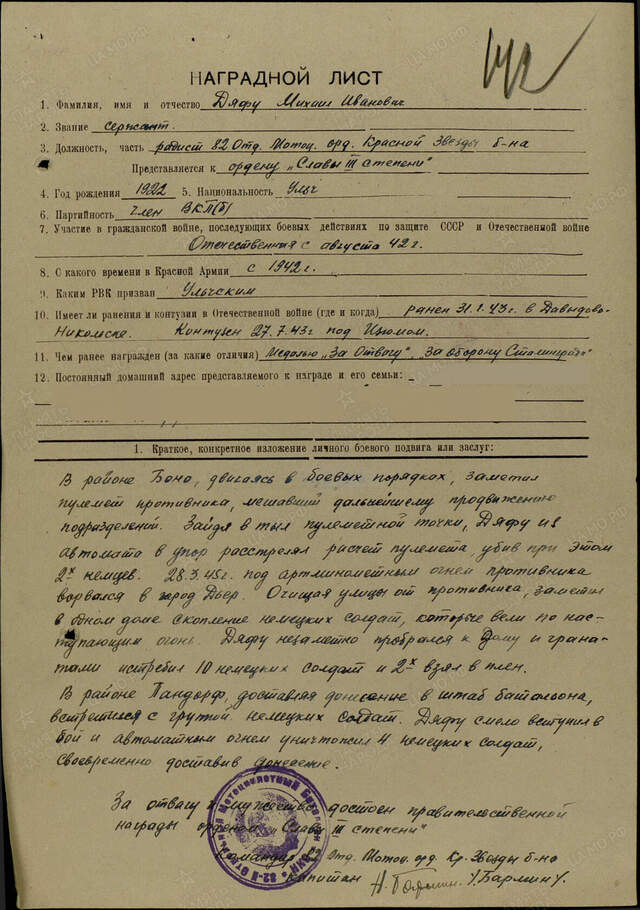 142
НАГРАДНОЙ ЛИСТ
1. Фамилия, имя и отчество Дяфу Михаил Иванович
2. Звание сержант.
3. Должность, часть радист 82 Отд. Мотоц. орд. Красной Звезды б-на
Представляется к ордену „Славы III степени"
4. Год рождения 1922 5. Национальность Ульч
6. Партийность член ВКП(б)
7. Участие в гражданской войне, последующих боевых действиях по защите СССР и Отечественной войне
Отечественная с августа 42 г.
8. С какого времени в Красной Армии с 1942 г.
9. Каким РВК призван Ульчским
10. Имеет ли ранения и контузии в Отечественной войне (где и когда) ранен 31.1.43г. в Давыдово-
Никольске. Контужен 27.7.43г под Изюмом.
11. Чем ранее награжден (за какие отличия) Медалью „За Отвагу", „За оборону Сталинграда"
12. Постоянный домашний адрес представляемого к награде и его семьи:
1. Краткое, конкретное изложение личного боевого подвига или заслуг:
В районе Боно, двигаясь в боевых порядках, заметил
пулемет противника, мешавший дальнейшему продвижению
подразделений. Зайдя в тыл пулеметной точки, Дяфу из
автомата в упор расстрелял расчет пулемета, убив при этом
2х немцев. 28.3.45г. под артминометным огнем противника
ворвался в город Дьер. Очищая улицы от противника, заметил
в одном доме скопление немецких солдат, которые вели по нас-
тупающим огонь. Дяфу незаметно пробрался к дому и грана-
тами истребил 10 немецких солдат и 2х взял в плен.
В районе Пандорф, доставляя донесение в штаб батальона,
встретился с группой немецких солдат. Дяфу смело вступил в
бой и автоматным огнем уничтожил 4 немецких солдат,
своевременно доставив донесение.
За отвагу и мужество достоин правительственной
награды орденом „Славы III степени"
Командир 82 Отд. Мотоц. орд. Кр. Звезды б-на
капитан /Бармин/.